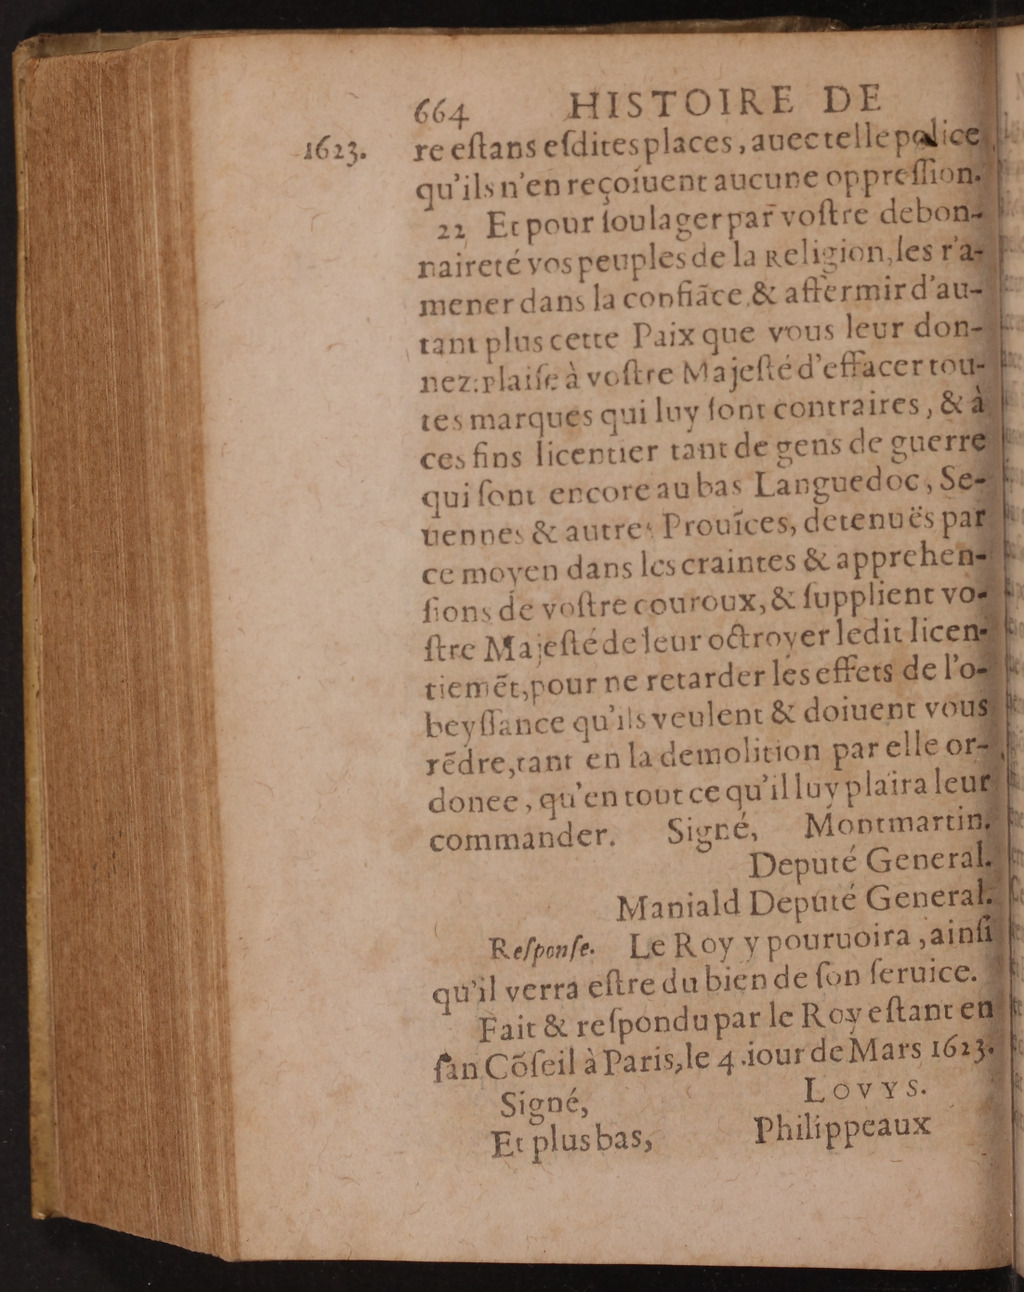 664 HISTOIRE DE
1623. re eſtans eſdites places, auec telle police
qu'ils n'en reçoiuent aucune oppreſſion.
22 Et pour ſoulager par voſtre debon-
naireté vos peuples de la Religion, les r'a-
mener dans la confiāce, & affermir d'au-
tant plus cette Paix que vous leur don-
nez: plaiſe à voſtre Majeſté d'effacer tou-
tes marques qui luy ſont contraires, & à
ces fins licentier tant de gens de guerre
qui ſont encore au bas Languedoc, Se-
uennes & autres Prouīces, detenuës par
ce moyen dans les craintes & apprehen-
ſions de voſtre couroux, & ſupplient vo-
ſtre Majeſté de leur octroyer ledit licen-
tiemēt, pour ne retarder les effets de l'o-
beyſſance qu'ils veulent & doiuent vous
rēdre, tant en la demolition par elle or-
donee, qu'en tout ce qu'il luy plaira leur
commander. Signé, Montmartin,
Deputé General.
Maniald Deputé General.
Reſponſe. Le Roy y pouruoira, ainſi
qu'il verra eſtre du bien de ſon ſeruice.
Fait & reſpondu par le Roy eſtant en
ſan Cōſeil à Paris, le 4. iour de Mars 1623.
Signé, LOVYS.
Et plus bas, Philippeaux